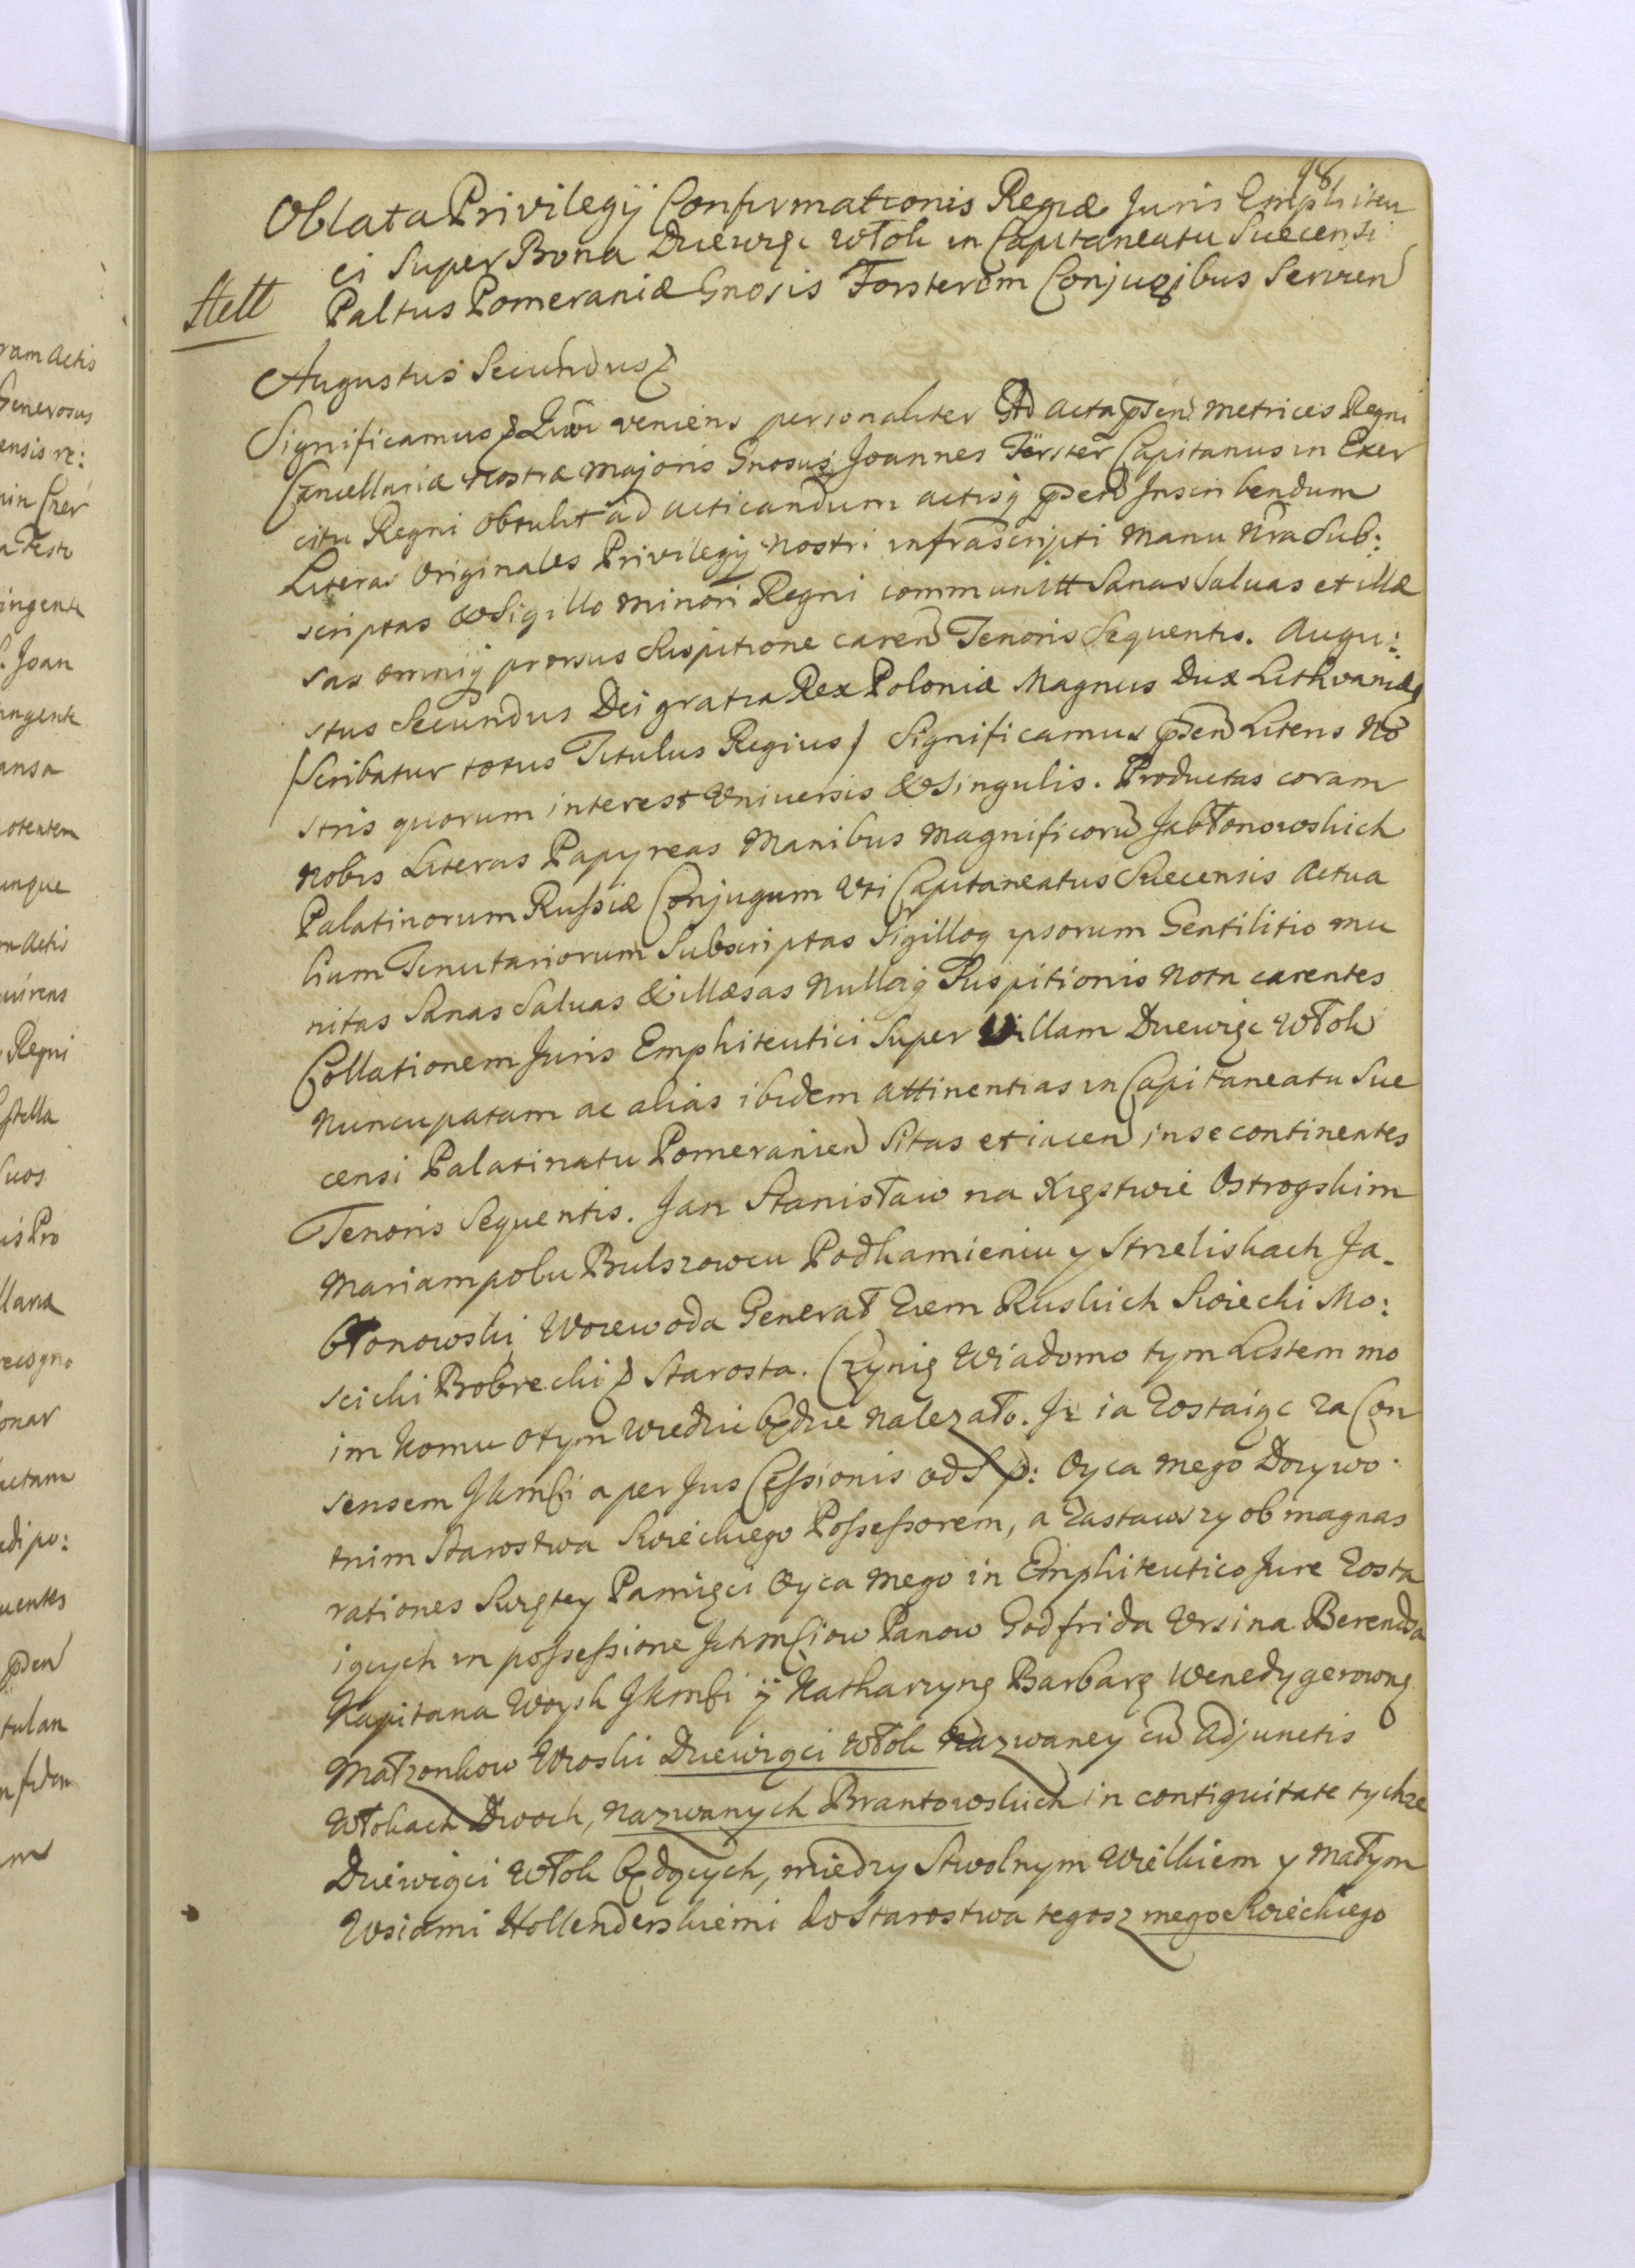 98
Oblata Privilegij Confirmationis Regiæ Juris Emphiteu
ci Super Bona Dziewięc Włok in Capitaneatu Suecensi
Stett Paltus Pomeraniæ Gnosis Forsterom Conjugibus Servien
Augustus Secundus
Significamus Quia veniens personaliter Ad acta psen Metrices Regni
Cancellariæ nostræ majoris Gnosus Joannes Förster Capitanus in Exer
citu Regni obtulit ad acticandum actisq psen Inscribendum
Literas Originales Privilegij nostri infrascripti Manu Nra Sub:
scriptas & Sigillo minori Regni communitt Sanas Saluas et illæ
sas omniq prorsus Suspitione caren Tenoris Sequentis. Augu:
stus Secundus Dei gratia Rex Poloniæ Magnus Dux Lithvaniæ
/Scribatur totus Titulus Regius/ Significamus psen Literis No
stris quorum interest Universis & Singulis. Productas coram
Nobis Literas Papyreas Manibus Magnificoru Jabłonowskich
Palatinorum Russiæ Conjugum Uti Capitaneatus Suecensis Actua
lium Tenutariorum Subscriptas Sigilloq ipsorum Gentilitio mu
nitas Sanas Saluas & illæsas Nullaq Suspitionis Nota carentes
Collationem Juris Emphiteutici Super Villam Dziewięc Włok
Nuncupatam ac alias ibidem attinentias in Capitaneatu Sue
censi Palatinatu Pomeranien Sitas et iacen in se continentes
Tenoris Sequentis. Jan Stanisław na Xięstwie Ostrogskim
Mariampolu Bulszowcu Podkamieniu y Strzeliskach Ja-
błonowski Woiewoda Generał Ziem Ruskich Swiecki Mo:
scicki Bobrecki Starosta. Czynię Wiadomo tym Listem mo
im komu o tym wiedzic będzie nalezało. Iz ia Zostaiąc za Con
sensem JKmsci a per Jus Cessionis od S p: Oyca mego Dozywo
tnim Starostwa Swieckiego Possessorem, a Zastawszy ob magnas
rationes Swiętey Pamięci Oyca mego in Emphiteutico Jure Zosta
iących in possessione Ichmsciow Panow Godfrida Ursina Berendsa
Kapitana Woysk JKmsci ÿ Katharzynę Barbarę Wenedygerownę
Małzonkow Wioski Dziewięci Włok Nazwaney cu Adjunctis
Włokach Dwoch, nazwanych Brantowskich in contiguitate tychze
Dziewięci Włok będących, miedzy Stwolnym Wielkiem y Małym
Wsiami Hollenderskiemi do Starostwa tegosz mego Swieckiego